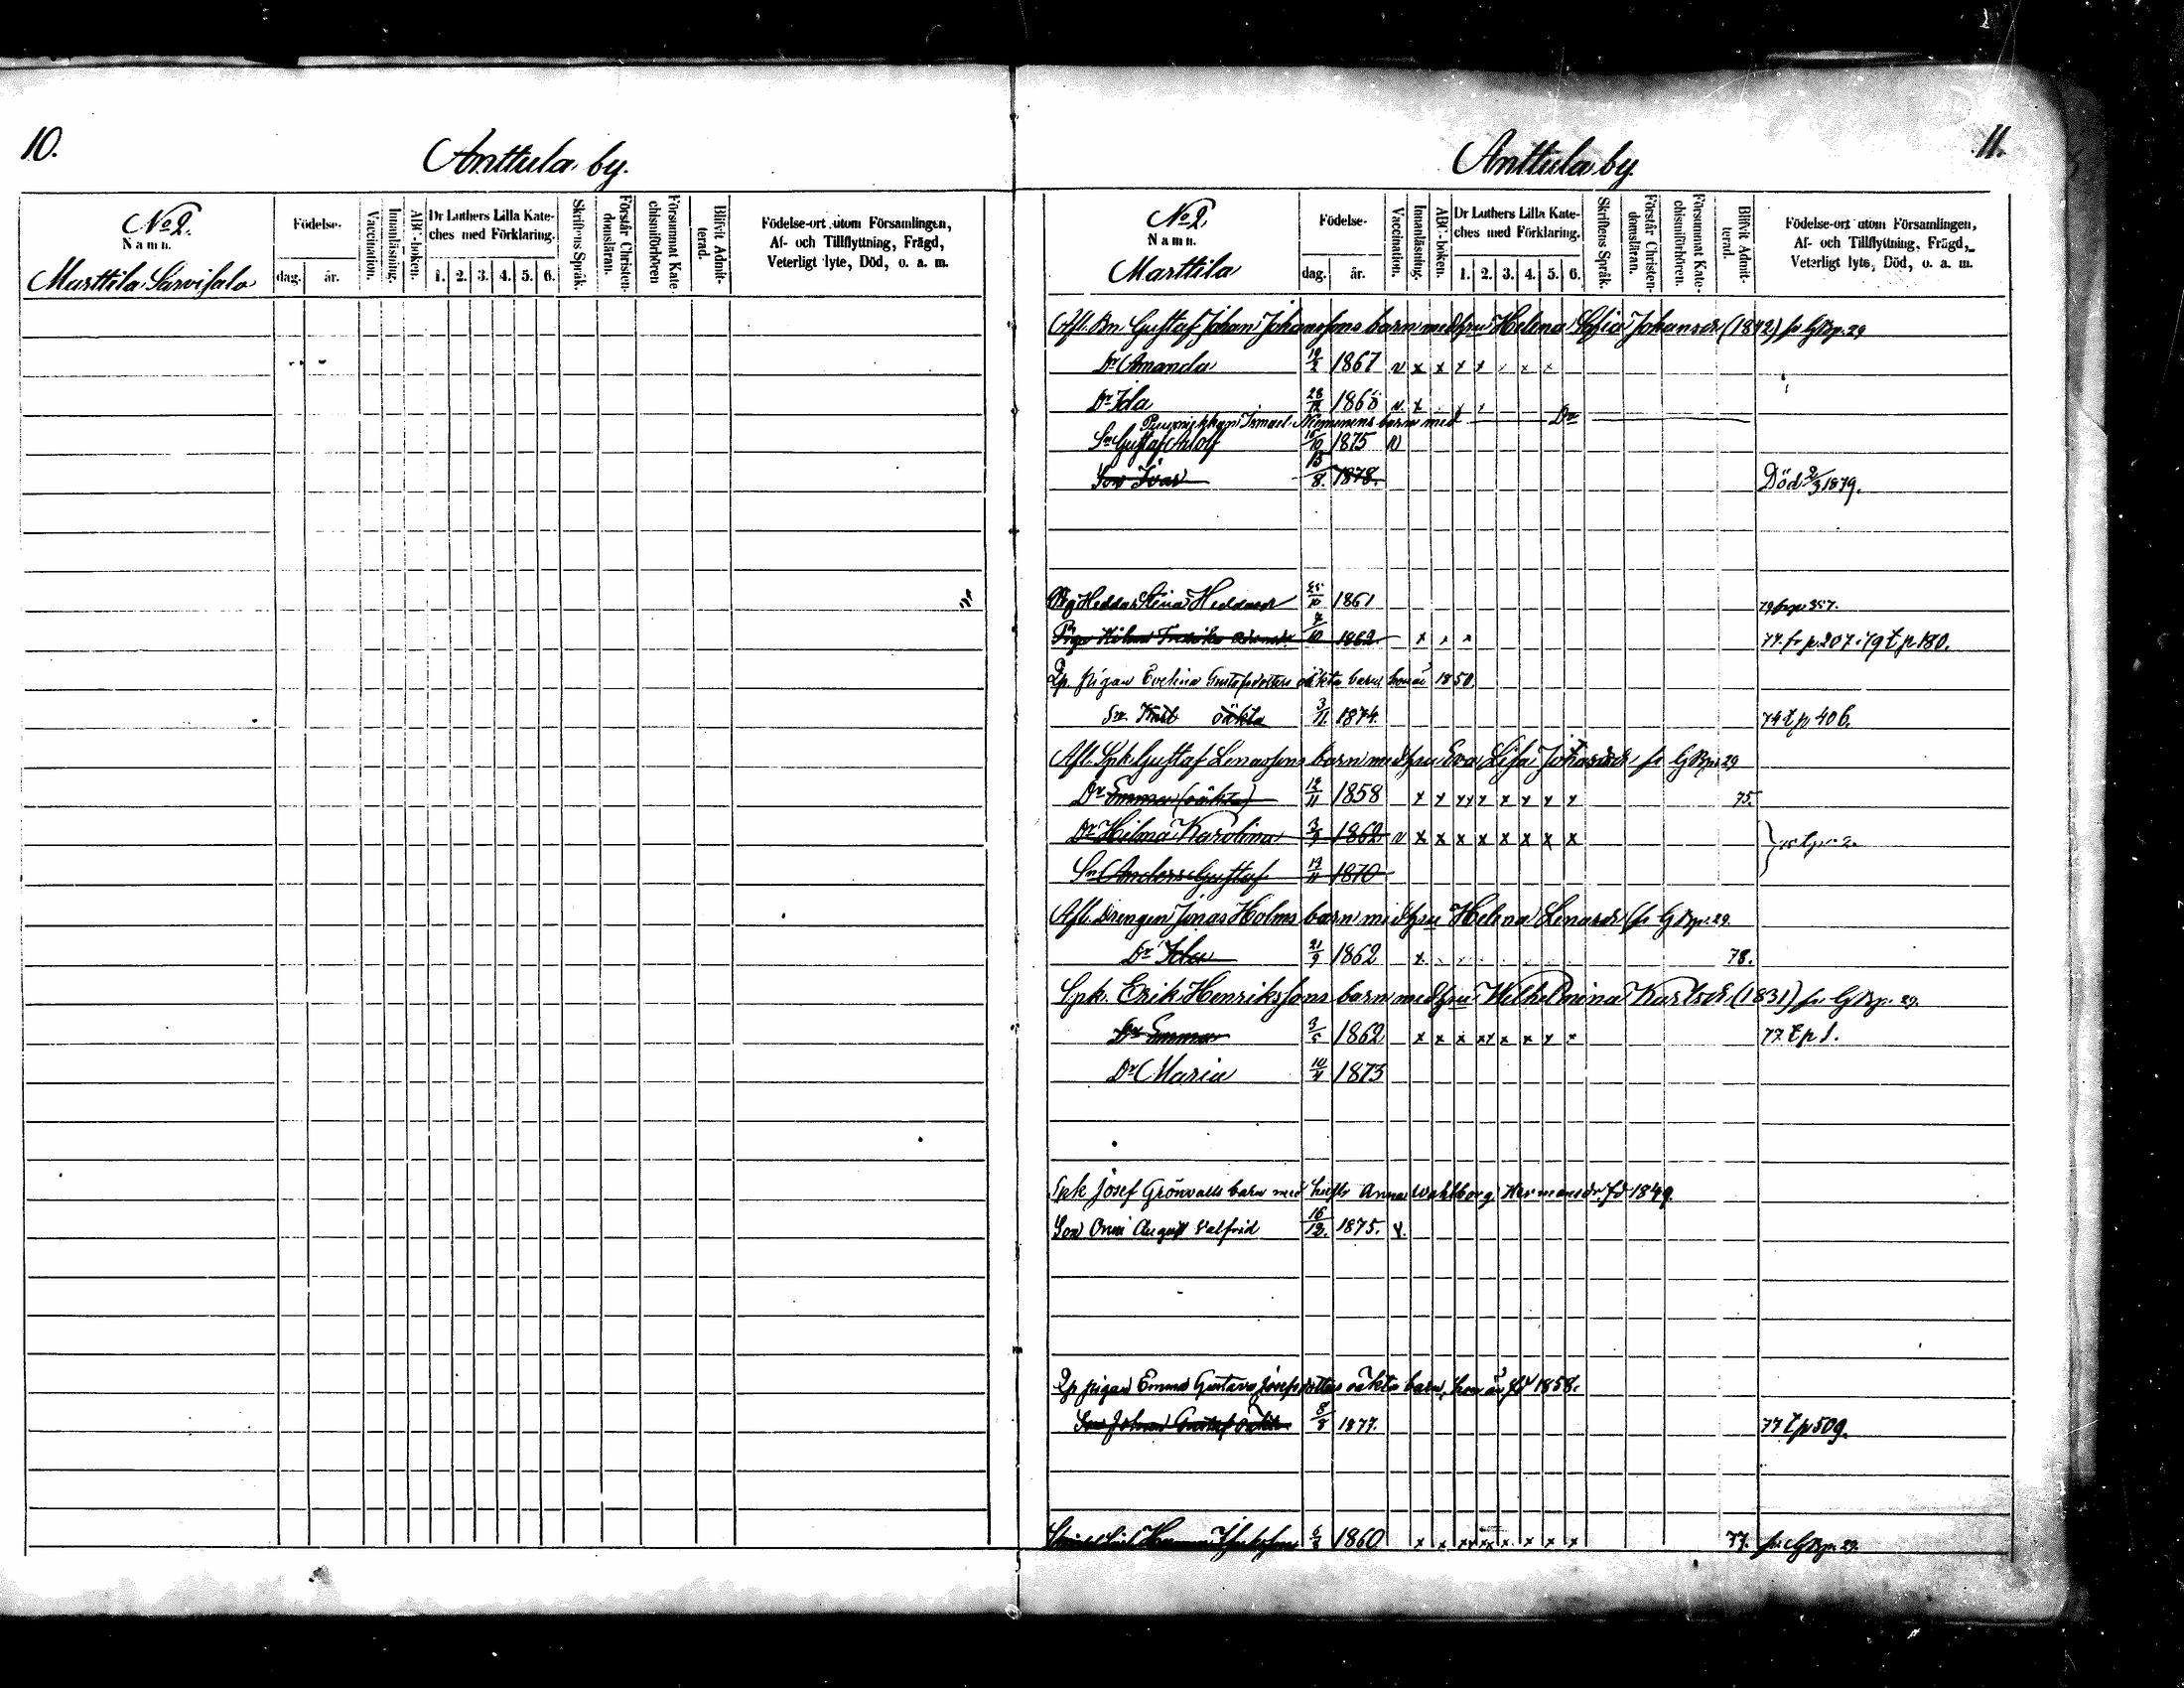 10.
Anttula by.
No 2.
Namn.
Marttila Sarvisalo
Födelse-
dag.
år.
Vaccination.
Innanläsning.
ABC-boken.
Dr Luthers Lilla Kate-
ches med Förklaring.
1. 2. 3. 4. 5. 6.
Skriftens Språk.
Förstår Christen-
domsläran.
Försummat Kate-
chismiförhören
Blifvit Admit-
terad.
Födelse-ort utom Församlingen,
Af- och Tillflyttning, Frägd,
Veterligt lyte, Död, o. a. m.
11.
Anttula by.
No 2.
Namn.
Marttila
Födelse-
dag.
år.
Vaccination.
Innanläsning.
ABC-boken.
Dr Luthers Lilla Kate-
ches med Förklaring.
1. 2. 3. 4. 5. 6.
Skriftens Språk.
Förstår Christen-
domsläran.
Försummat Kate-
chismiförhören.
Blifvit Admit-
terad.
Födelse-ort utom Församlingen,
Af- och Tillflyttning, Frägd,
Veterligt lyte, Död, o. a. m.
Afl. Bn Gustaf Johan Johanssons barn med hru Helena Sofia Johansdr (1842) fr G Bp. 29
Dr Amanda 1867 v x x x x x x x
Dr Ida 1868 v. x
Israel Nimmenens barn med Do
Sn Gustaf Adolf 16/10 1875 v
Son Ivar 15/8. 1878. Död 2/3 1879.
Pig Hedda Stina 25/10 1861 79 fr p 357.
Piga Hilma 7/10 1862 x x x 77. fr p. 207. 79 t p 180.
Lp. pigan Evelina Gustafsdotters oäkta barn hon är 1850.
Sn. Karl oäkta 3/11. 1874. 74 t p 406.
Afl. Spk Gustaf Lenassons barn med hru Eva Lisa fr G Bp. 29
Dr Emma (oäkta) 12/11 1858 x x xx x x x x x 75.
Dr Hilma Karolina 1862 v x x x x x x x x
Sn Anders Gustaf 1870
Afl. Drengen Jonas Holms barn med hru Helena Lenasdr fr G Bp. 29.
Dr Ida 21/9 1862 x 78.
Spk. Erik Henrikssons barn med hru Wilhelmina Karlsdr (1831) fr G Bp. 29.
Dr Emma 3/5 1862 x x x xx x x x x 77 t p 1.
Dr Maria 1873
Spk Josef Grönvalls barn med hustr Anna Wahlborg Hermansdr fd 1849.
Son Onni August Valfrid 16/12. 1875. v.
Lp pigan Emma Gustava Josefsdotters oäkta barn, hon är fd 1858.
Son Johan Gustaf oäkta 8/8 1877. 77 t p 509.
1860 x x xx xx x. x x x 77. fr G Bp. 29.